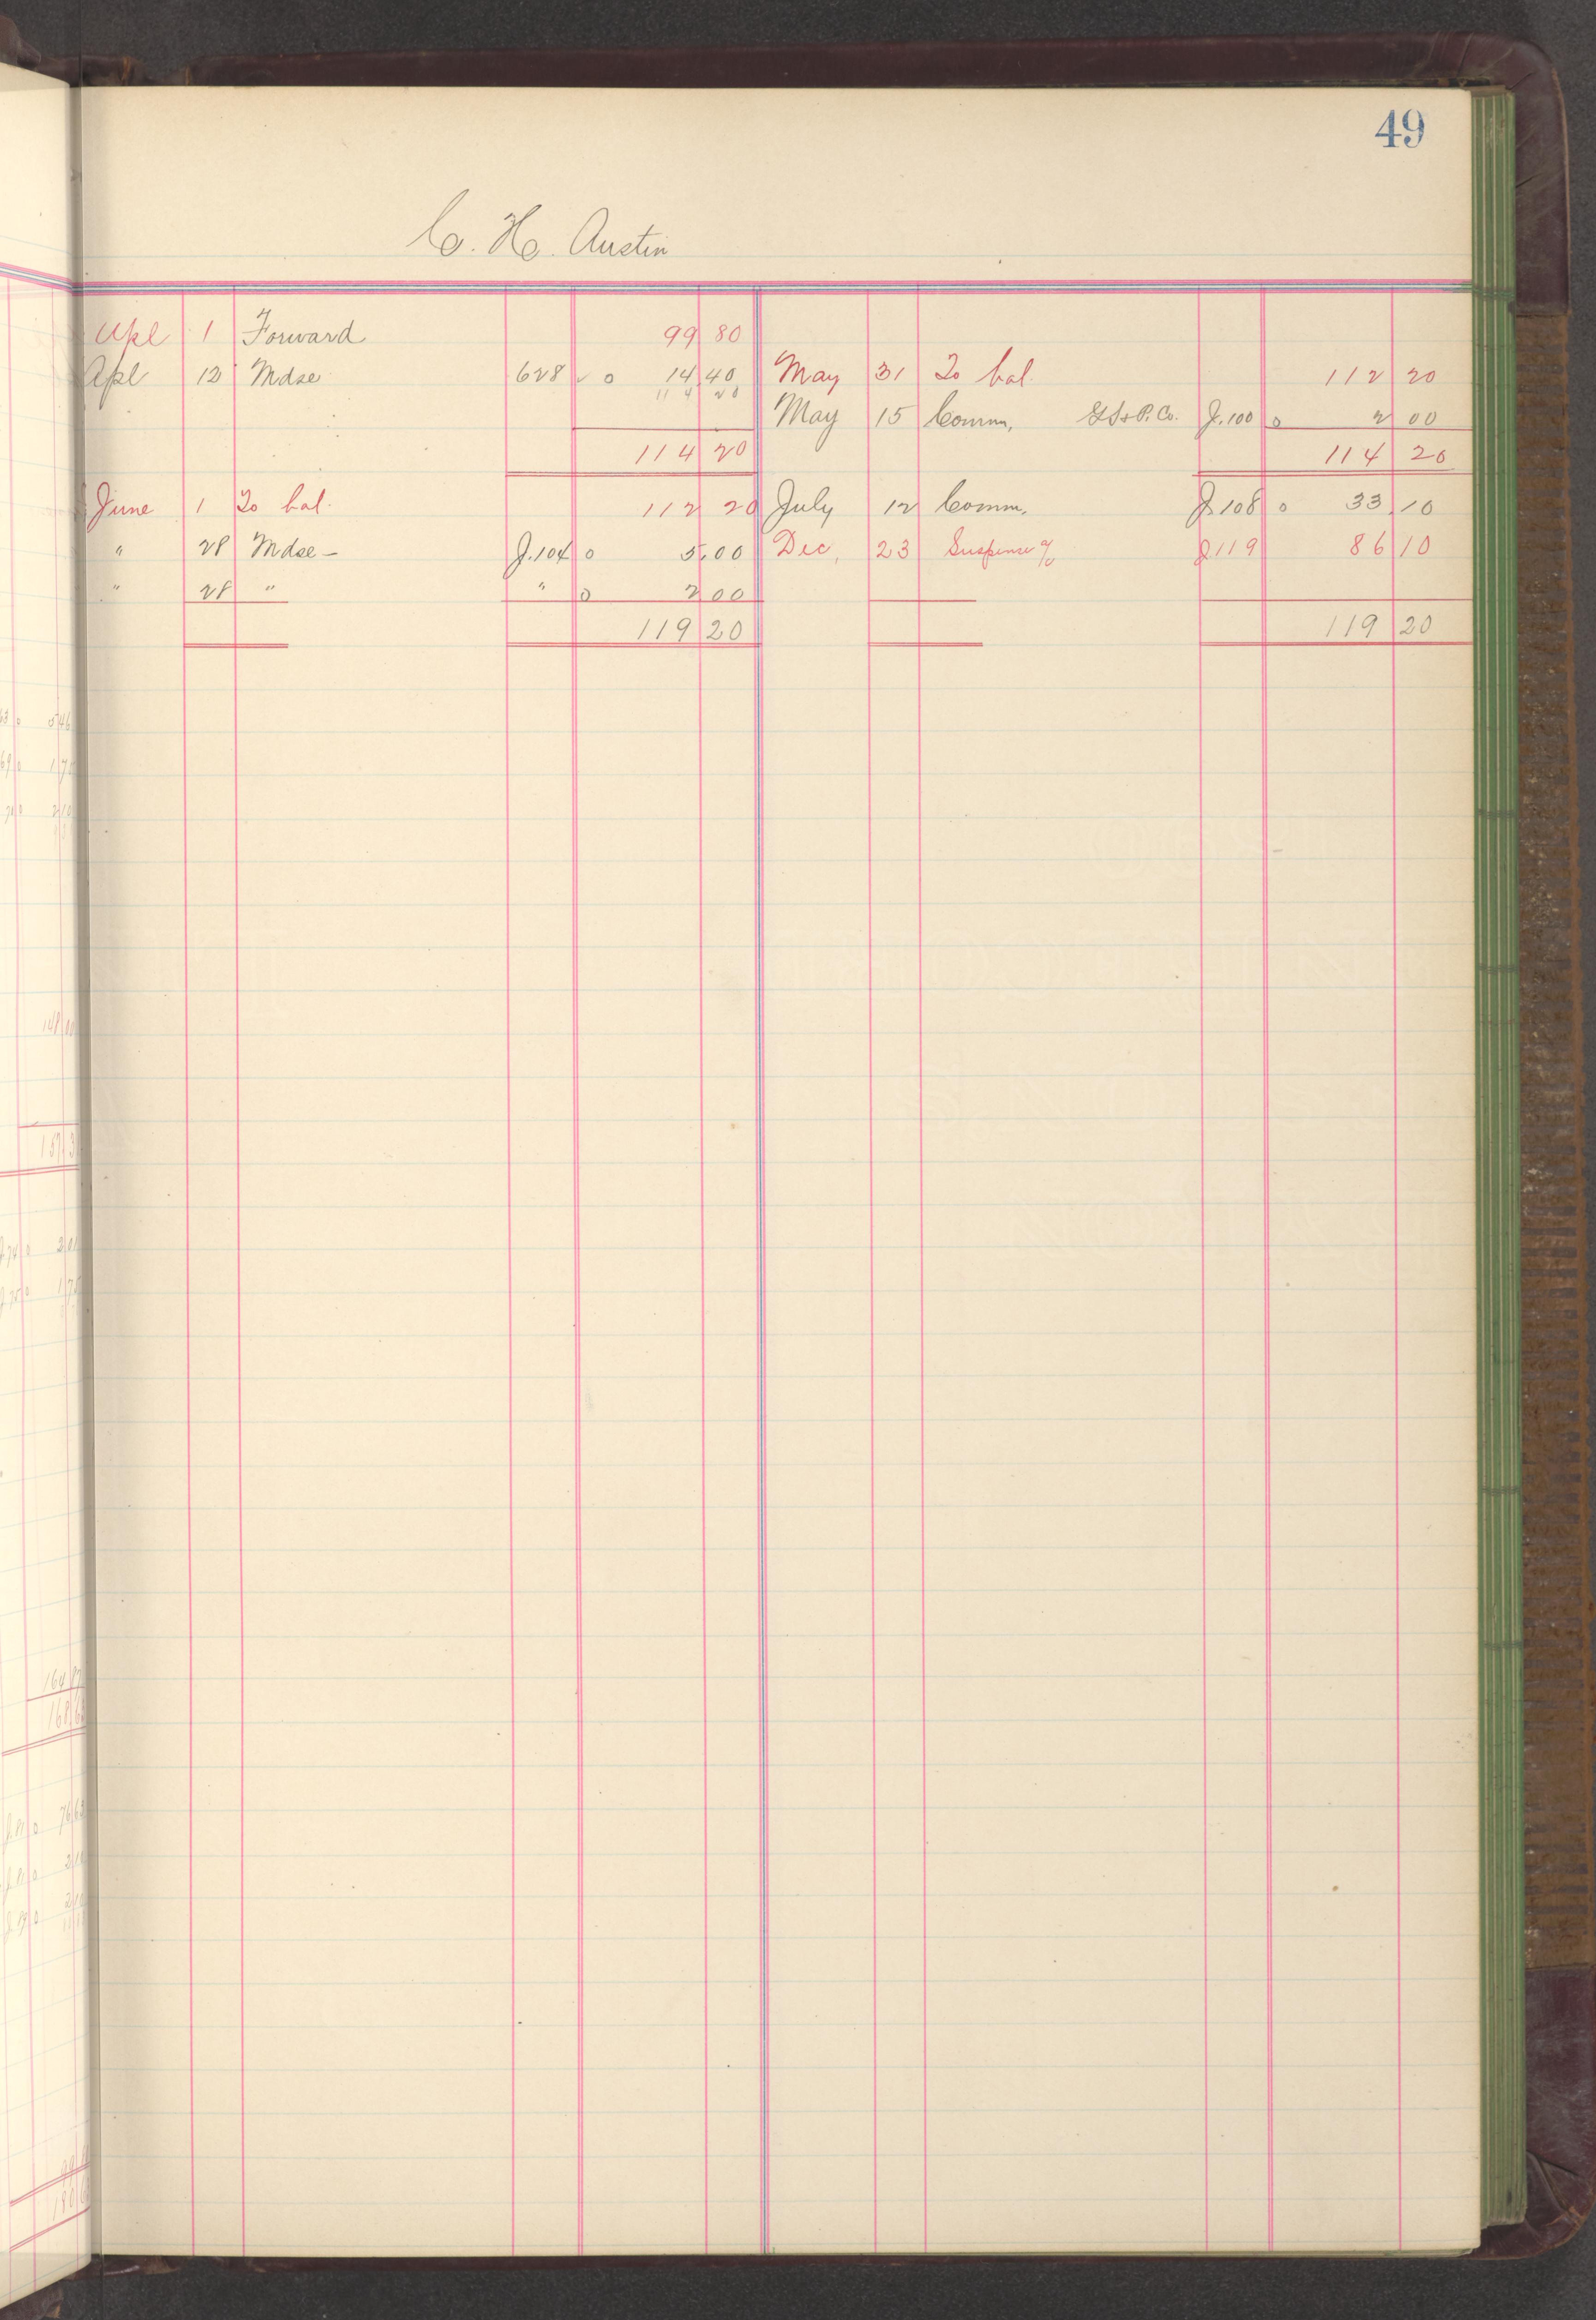 49
C. H. Austin
Apl 1 Forward 99 80
Apl 12 Mdse 628 ✓ o 14 40 May 31 To bal. 112 20
114 20
May 15 Comm, J. 100 o 2 00
114 20 114 20
June 1 To bal. 112 20 July 12 Comm. J. 108 o 33 10
" 28 Mdse – J. 104 o 5.00 Dec, 23 Suspense a/c J 119 86 10
" 28 " " o 2 00
119 20 119 20